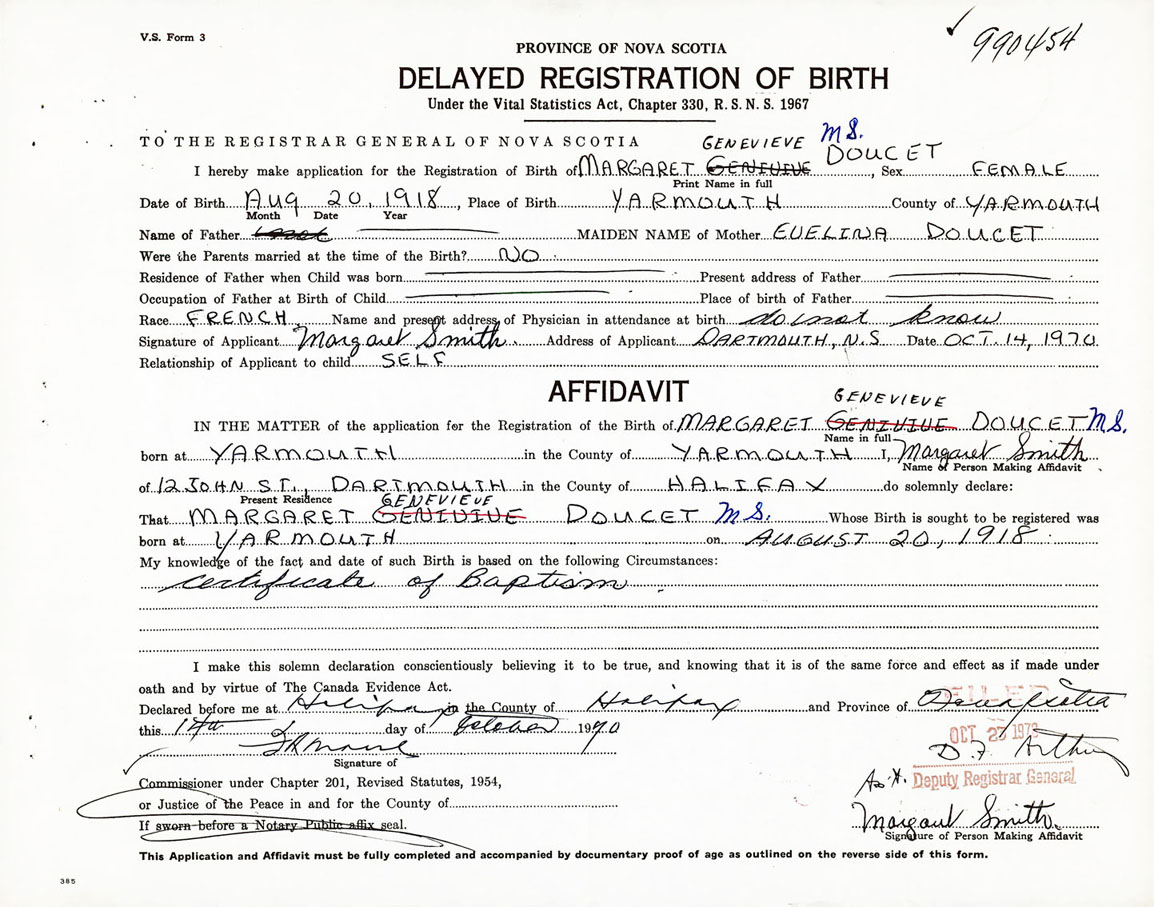 V.S. Form 3
990454
PROVINCE OF NOVA SCOTIA
DELAYED REGISTRATION OF BIRTH
Under the Vital Statistics Act, Chapter 330, R. S. N. S. 1967
TO THE REGISTRAR GENERAL OF NOVA SCOTIA
GENEVIEVE M S.
I hereby make application for the Registration of Birth of MARGARET GENIVIVE DOUCET, Sex FEMALE
Print Name in full
Date of Birth AUG 20, 1918, Place of Birth YARMOUTH County of YARMOUTH
Month Date Year
Name of Father MAIDEN NAME of Mother EVELINA DOUCET
Were the Parents married at the time of the Birth? NO
Residence of Father when Child was born Present address of Father
Occupation of Father at Birth of Child Place of birth of Father
Race FRENCH Name and present address of Physician in attendance at birth do not know
Signature of Applicant Margaret Smith Address of Applicant DARTMOUTH, N.S Date OCT. 14, 1970
Relationship of Applicant to child SELF
AFFIDAVIT
GENEVIEVE
IN THE MATTER of the application for the Registration of the Birth of MARGARET GENIVIVE DOUCET M S.
Name in full
born at YARMOUTH in the County of YARMOUTH I, Margaret Smith
Name of Person Making Affidavit
of 12 JOHN ST., DARTMOUTH in the County of HALIFAX do solemnly declare:
Present Residence GENEVIEVE
That MARGARET GENIVIVE DOUCET M S. Whose Birth is sought to be registered was
born at YARMOUTH on AUGUST 20, 1918
My knowledge of the fact and date of such Birth is based on the following Circumstances:
Certificate of Baptism
I make this solemn declaration conscientiously believing it to be true, and knowing that it is of the same force and effect as if made under
oath and by virtue of The Canada Evidence Act.
Declared before me at Halifax in the County of Halifax and Province of Nova Scotia
this 14th day of October 1970
FILED
OCT 27 1970
Signature of
D. F. Arthur
Ass't. Deputy Registrar General
Commissioner under Chapter 201, Revised Statutes, 1954,
or Justice of the Peace in and for the County of
If sworn before a Notary Public affix seal.
Margaret Smith
Signature of Person Making Affidavit
This Application and Affidavit must be fully completed and accompanied by documentary proof of age as outlined on the reverse side of this form.
385